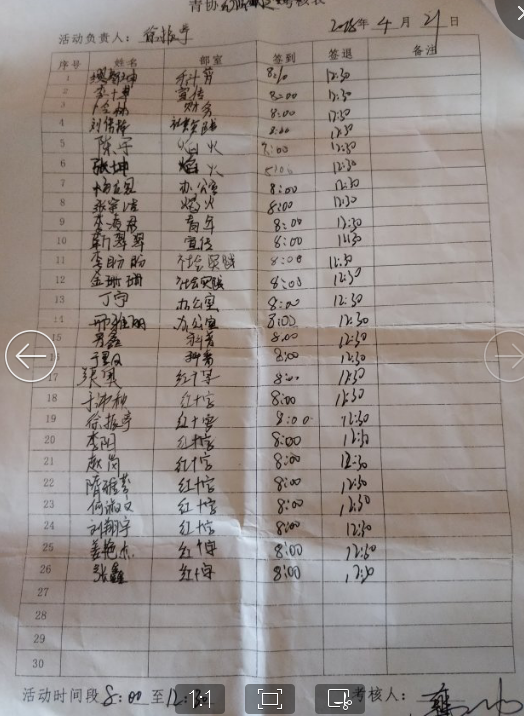 活动负责人：徐振宇 2018年 4 月 21 日
序号 姓名 部室 签到 签退 备注
1 科普 8:10 12:30
2 宣传 8:00 12:30
3 财务 8:00 12:30
4 刘 社会实践 8:00 12:30
5 陈宇 焰火 8:00 12:30
6 张坤 焰火 12:30
7 办公室 8:00 12:30
8 焰火 8:00 12:30
9 青年 8:00 12:30
10 靳翠翠 宣传 8:00 12:30
11 李盼盼 社会实践 8:00 12:30
12 金珊珊 社会实践 8:00 12:30
13 丁宁 办公室 8:00 12:30
14 邢雅丽 办公室 8:00 12:30
15 8:00 12:30
1 8:00 12:30
17 红十字 8:00 12:30
18 红十字 8:00 12:30
19 徐振宇 红十字 8:00 12:30
20 李阳 红十字 8:00 12:30
21 赵岗 红十字 8:00 12:30
22 红十字 8:00 12:30
23 红十字 8:00 12:30
24 刘翔宇 红十字 8:00 12:30
25 姜艳杰 红十字 8:00 12:30
26 张鑫 红十字 8:00 12:30
27
28
29
30
活动时间段 8:00 至 12:30 考核人：
1:1